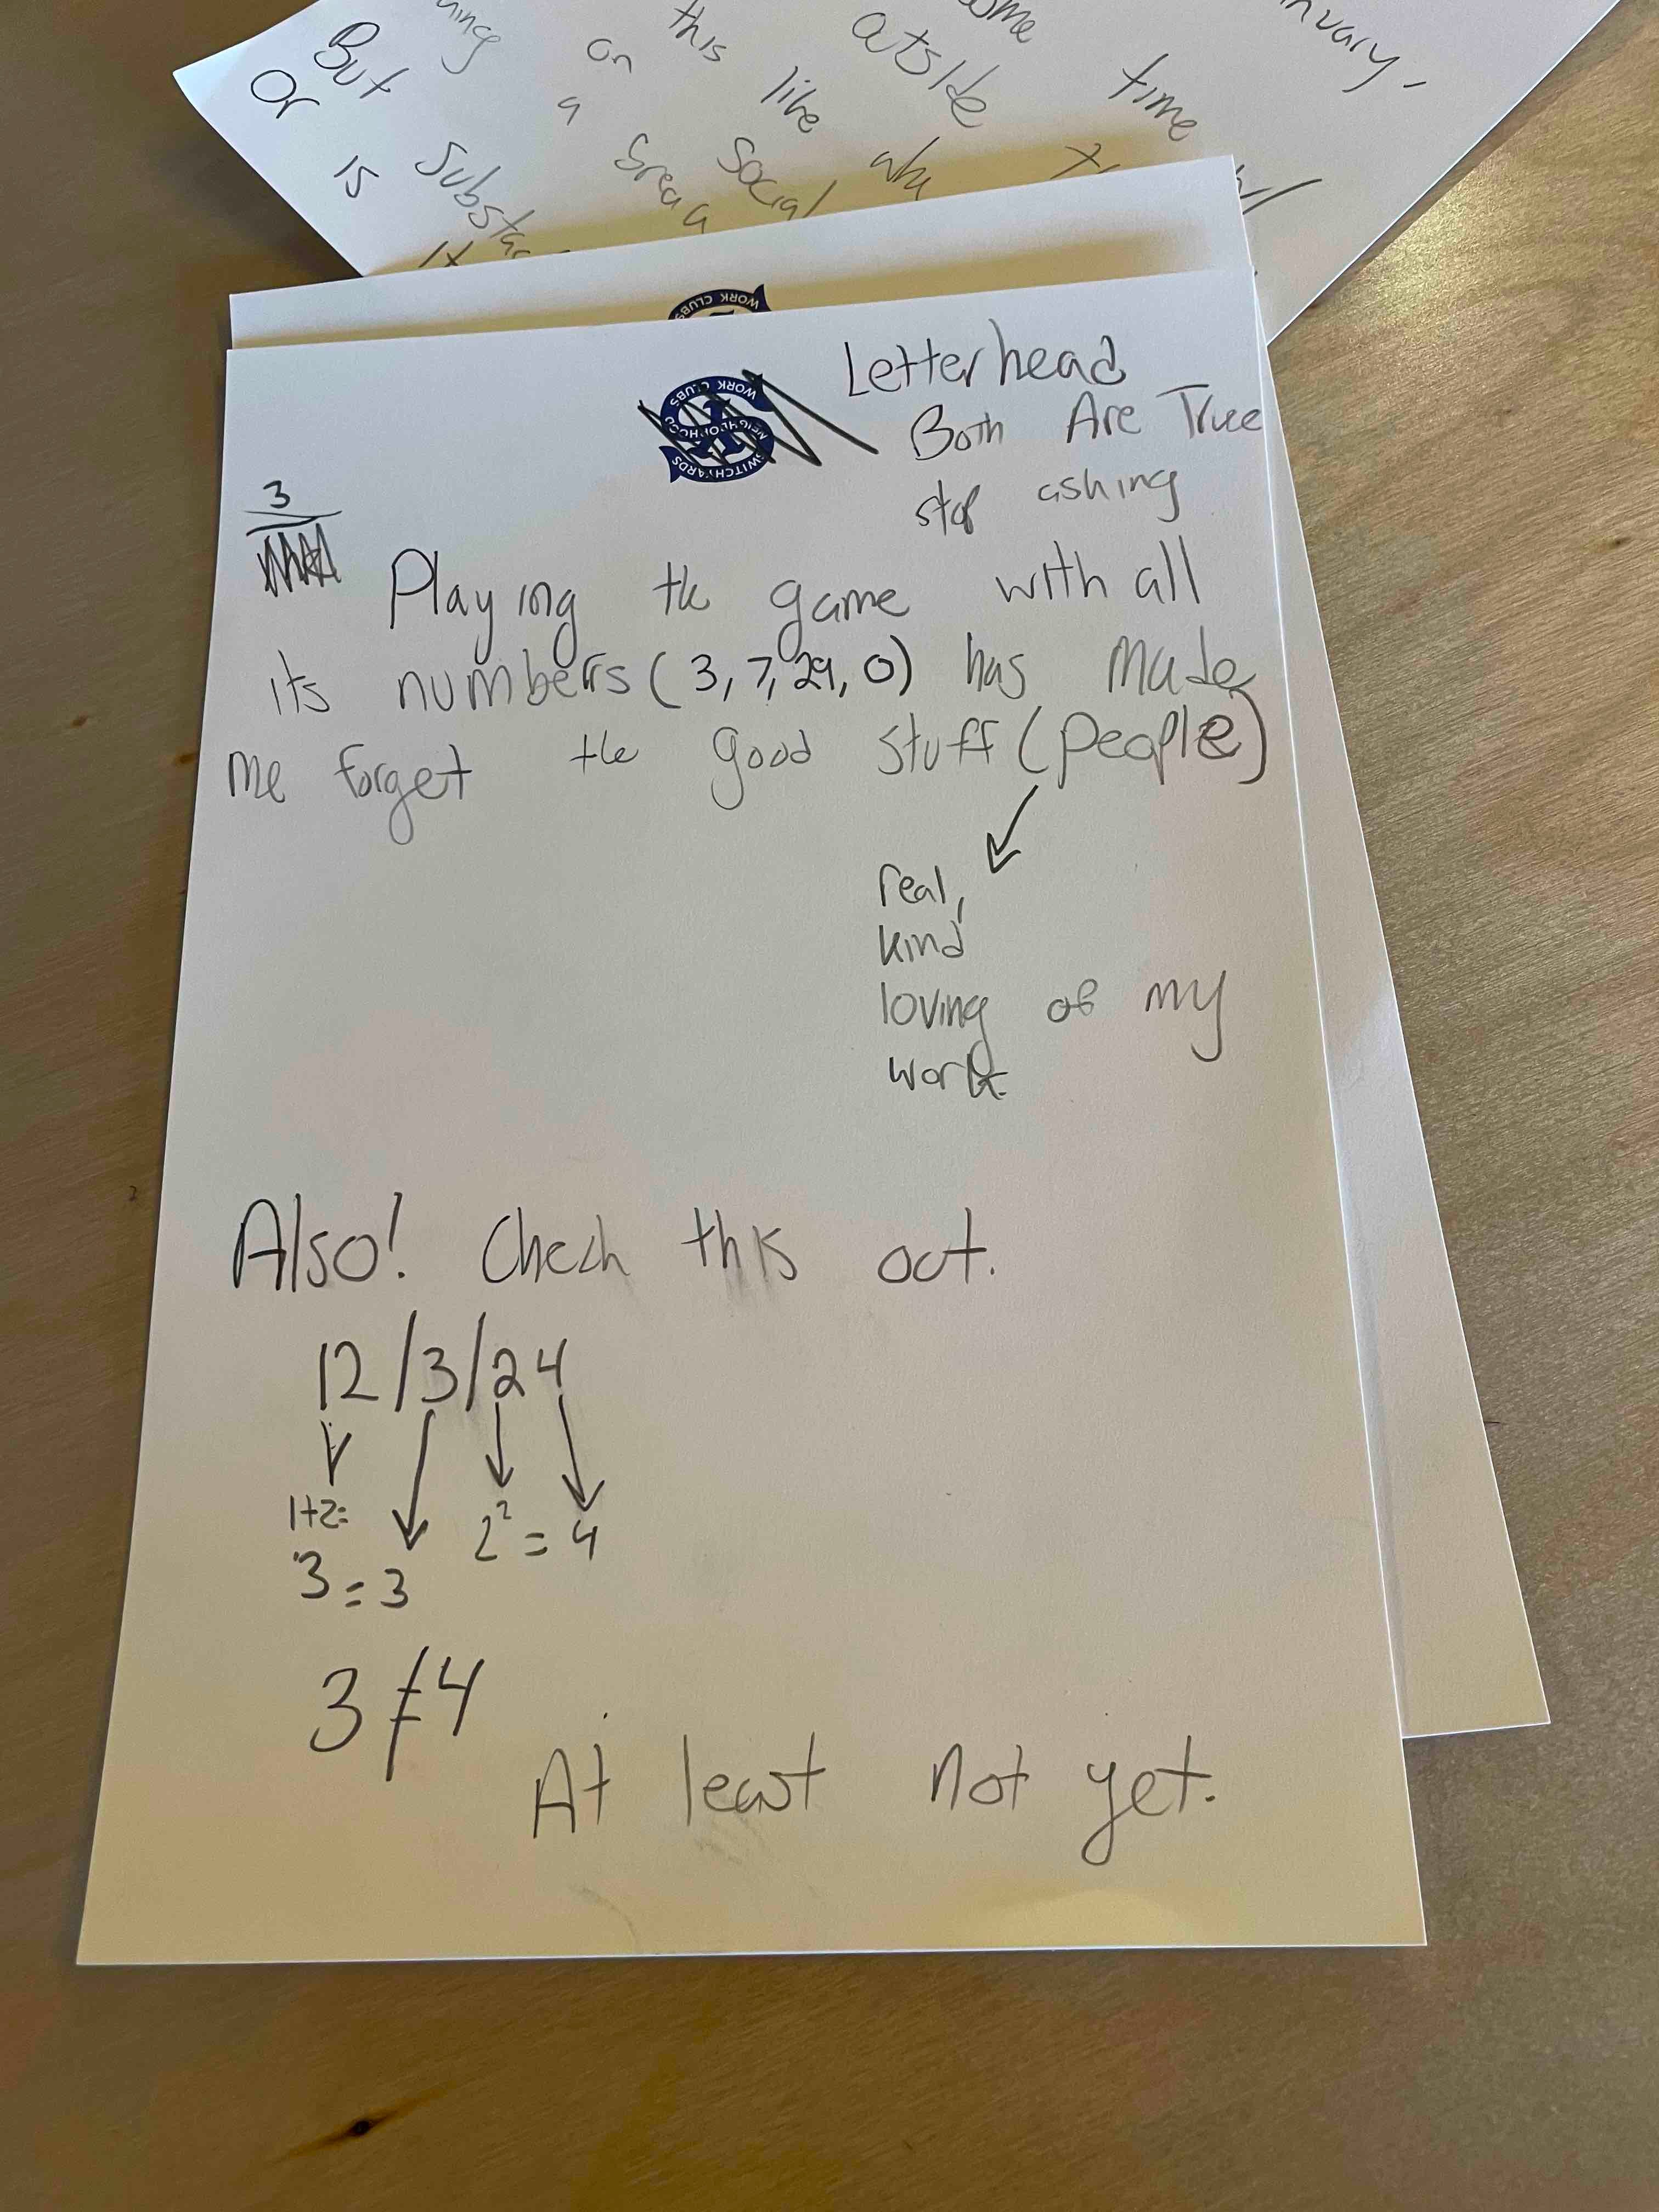 nuary,
ome time w/
this atside
on like wha
But a social
Or substa break
is
It
WORK CLUBS
SWITCHYARDS
NEIGHBORHOOD
WORK CLUBS
Letterhead
Both Are True
stop asking
3
Playing the game with all
its numbers (3, 7, 29, 0) has made
me forget the good stuff (people)
real,
kind
loving of my
work.
Also! Check this out.
12/3/24
1+2=
3 = 3
2² = 4
3 ≠ 4
At least not yet.